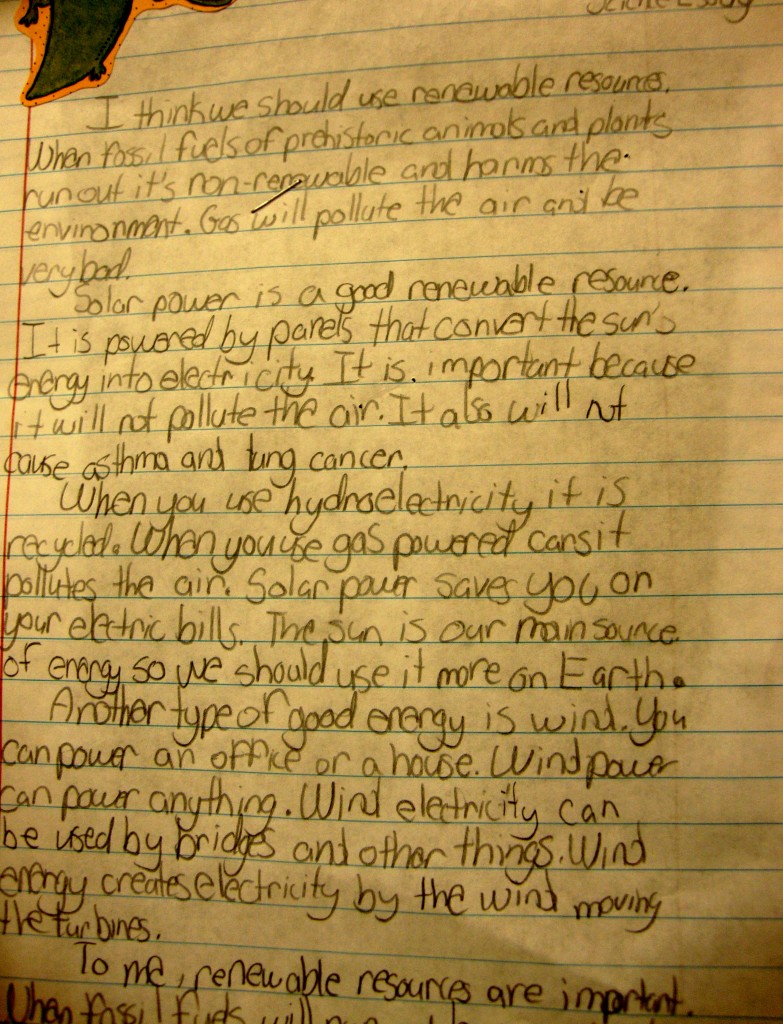 Science Essay
I think we should use renewable resources.
When fossil fuels of prehistoric animals and plants
run out it's non-renewable and harms the
environment. Gas will pollute the air and be
very bad.
Solar power is a good renewable resource.
It is powered by panels that convert the sun's
energy into electricity. It is important because
it will not pollute the air. It also will not
cause asthma and lung cancer.
When you use hydroelectricity it is
recycled. When you use gas powered cars it
pollutes the air. Solar power saves you on
your electric bills. The sun is our main source
of energy so we should use it more on Earth.
Another type of good energy is wind. You
can power an office or a house. Wind power
can power anything. Wind electricity can
be used by bridges and other things. Wind
energy creates electricity by the wind moving
the turbines.
To me, renewable resources are important.
When fossil fuels will run